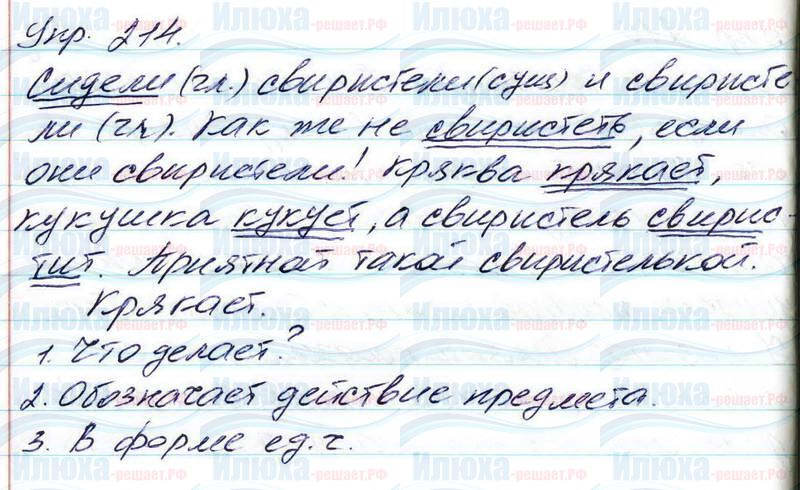 Упр. 214.
Сидели (гл.) свиристели (сущ) и свиристе
ли (гл). Как же не свиристеть, если
они свиристели! Кряква крякает,
кукушка кукует, а свиристель свирис-
тит. Приятной такой свиристелькой.
Крякает.
1. Что делает?
2. Обозначает действие предмета.
3. В форме ед. ч.
Илюха-решает.РФ